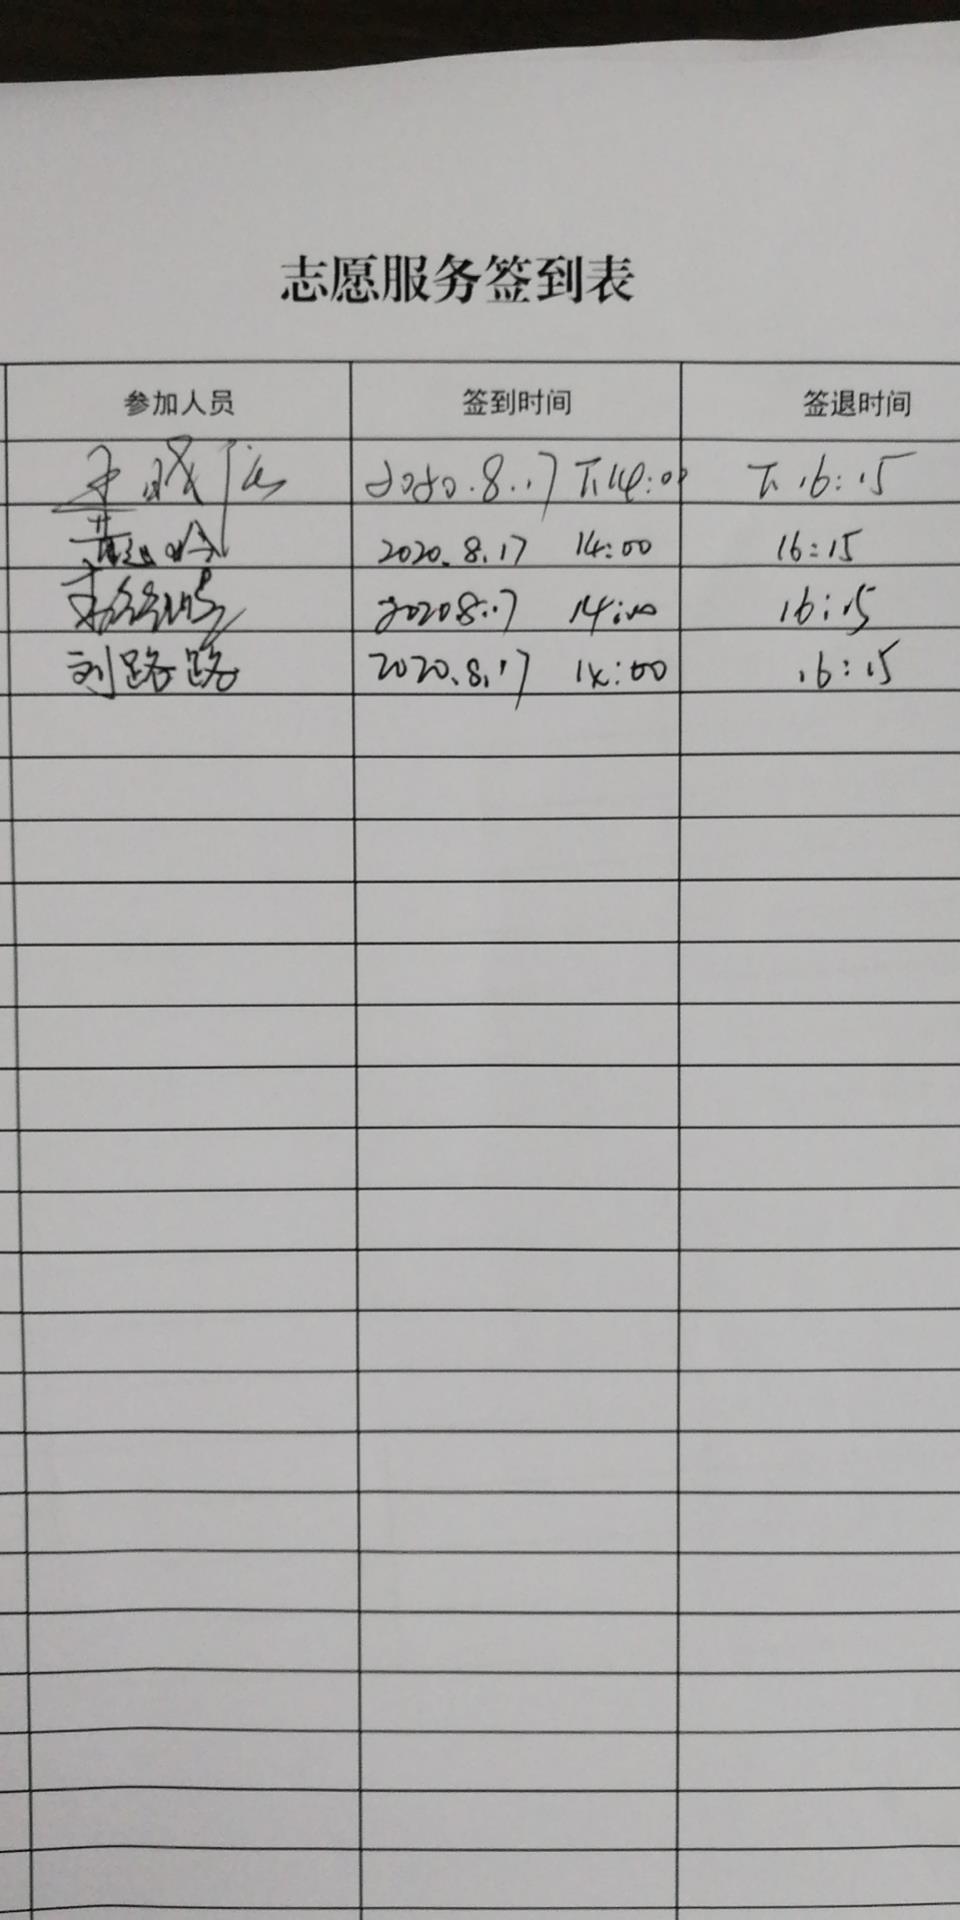 志愿服务签到表
参加人员 签到时间 签退时间
2020.8.17 下14:00 下16:15
2020.8.17 14:00 16:15
2020 8.17 14:00 16:15
刘路路 2020.8.17 14:00 16:15